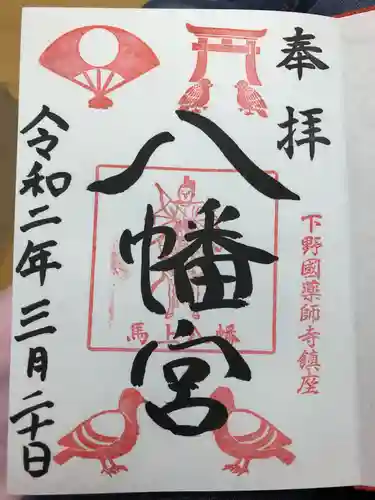 奉拝
下野國薬師寺鎮座
八幡宮
馬上八幡
令和二年三月二十日